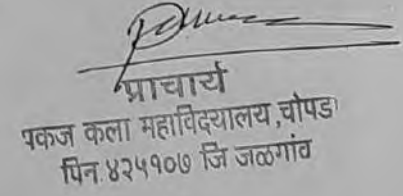 प्राचार्य
पंकज कला महाविदयालय ,चोपडा
पिन.४२५१०७ जि जळगांव